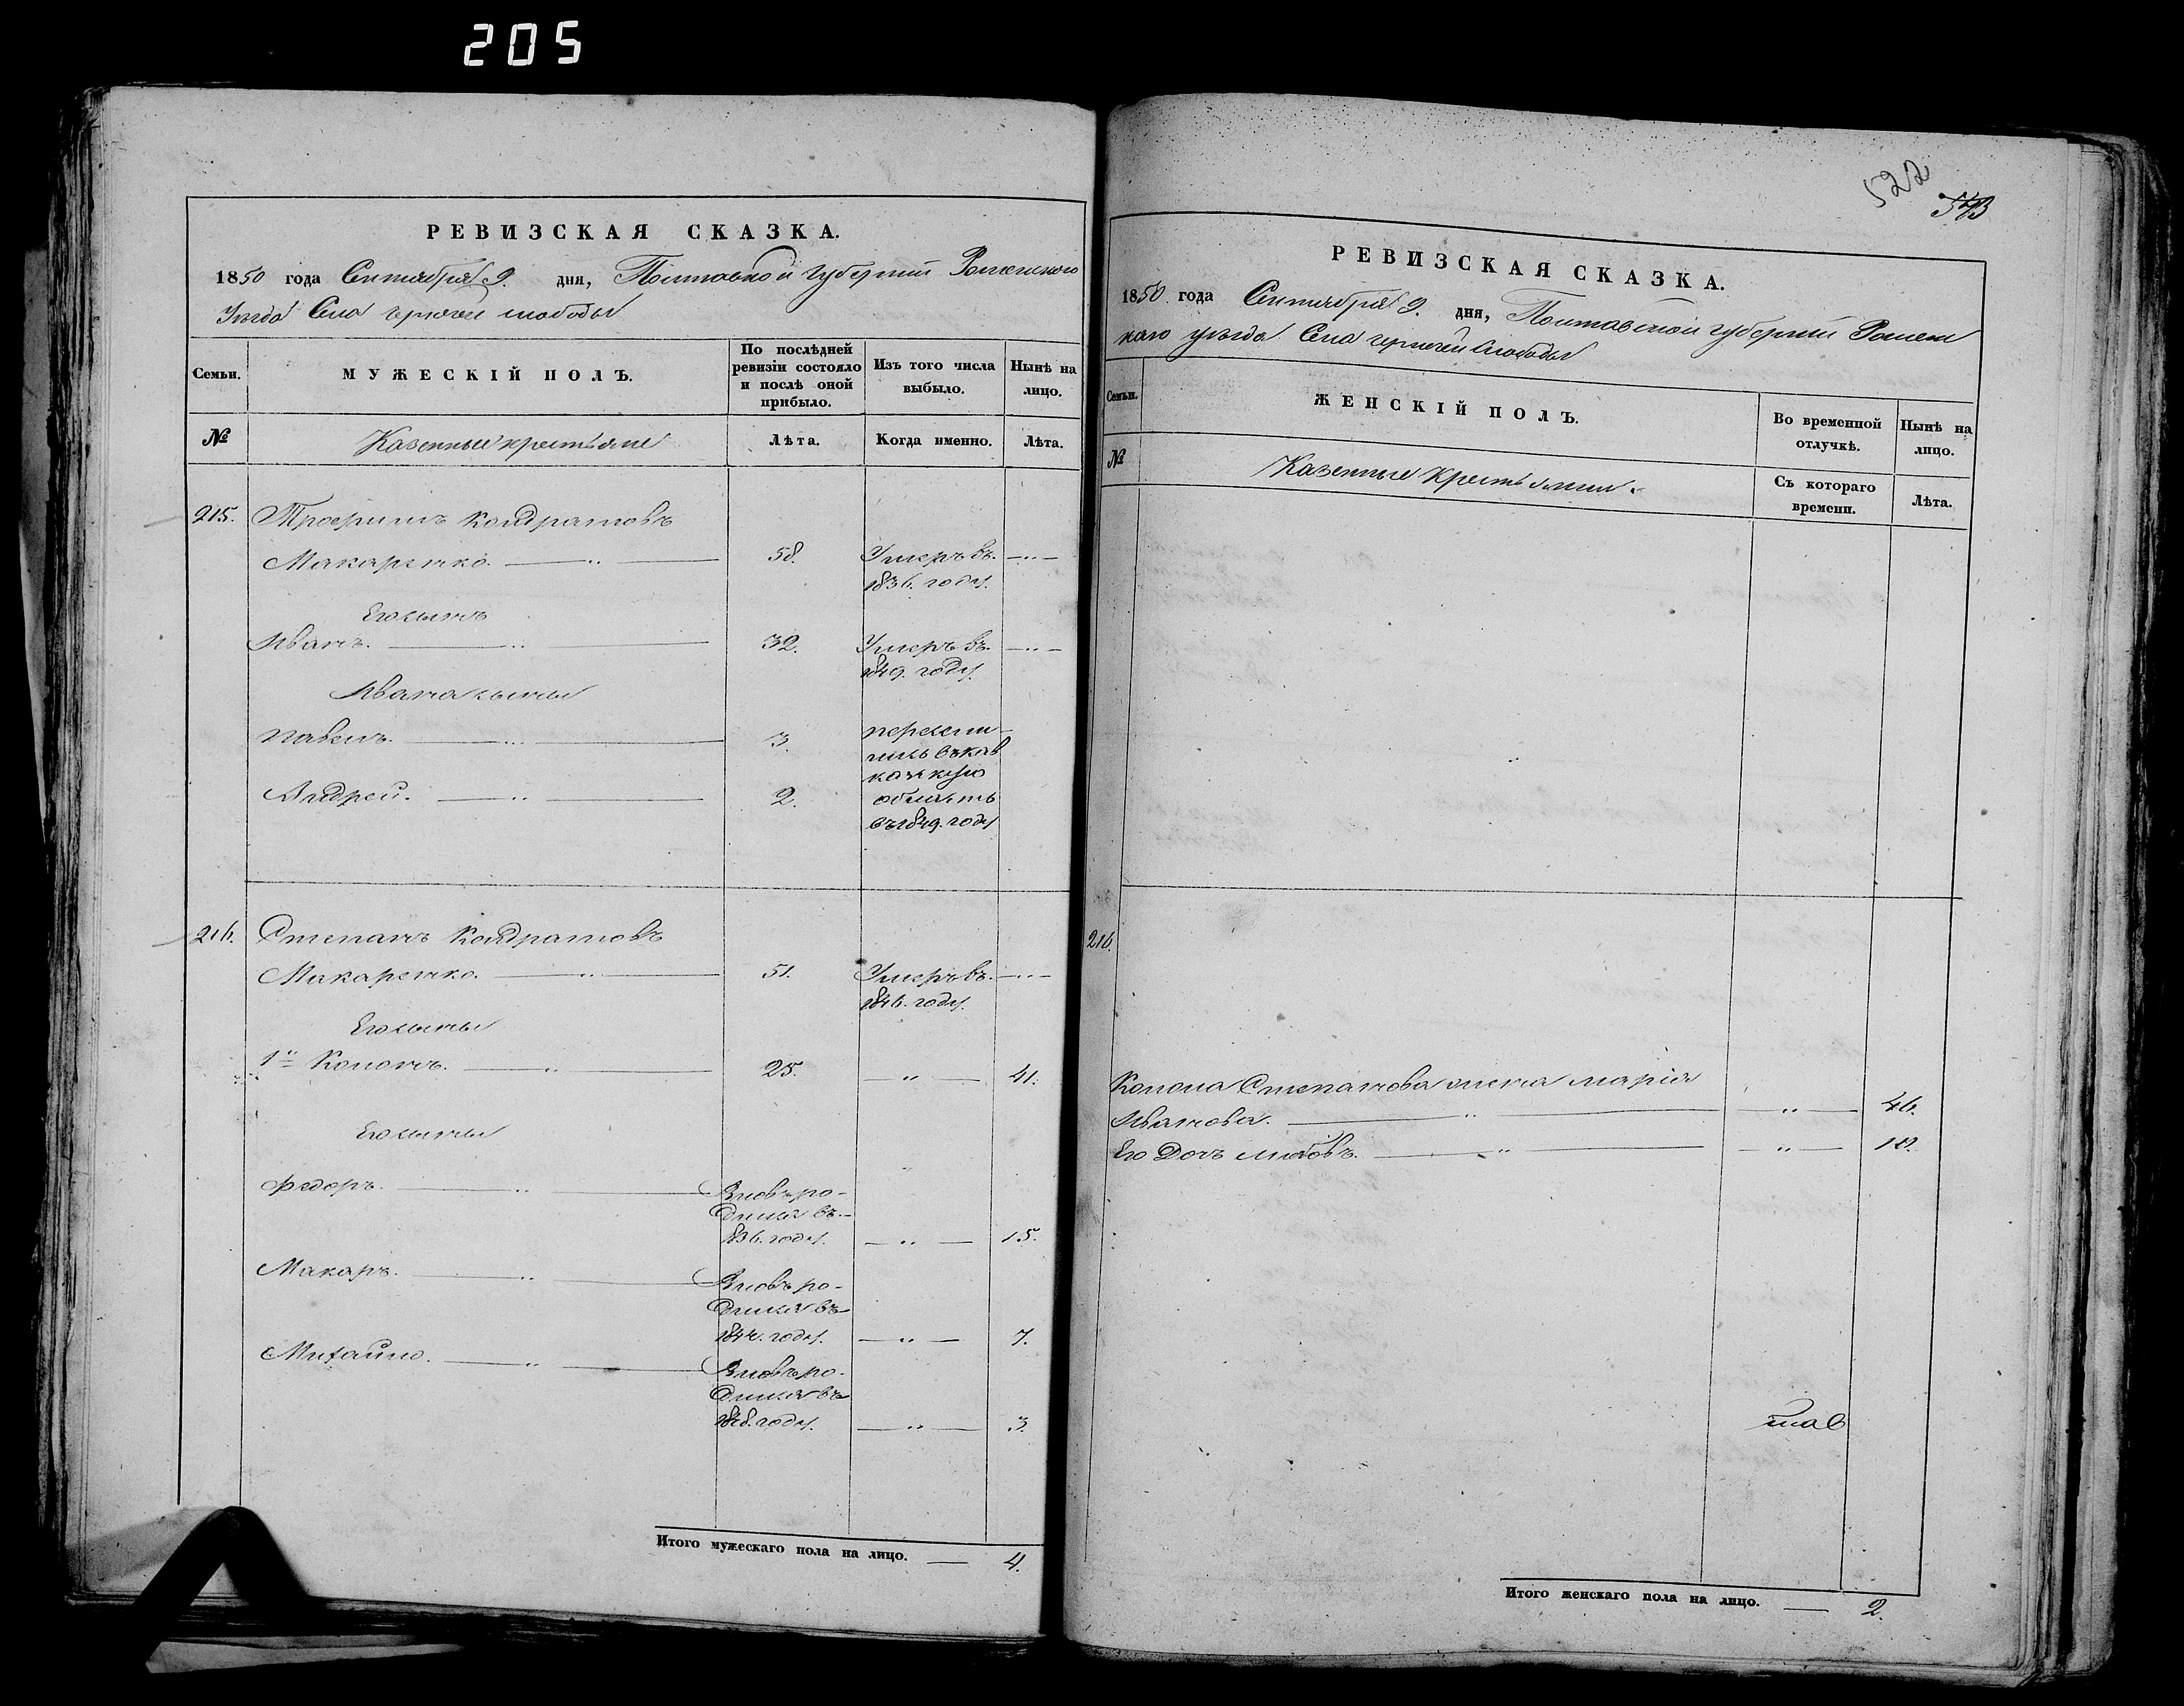 205
РЕВИЗСКАЯ СКАЗКА.
1850 года Сентября 9. дня, Полтавской губерніи Роменского
Уѣзда Села чернечей слободы
Семьи.
МУЖЕСКІЙ ПОЛЪ.
По послѣдней
ревизіи состояло
и послѣ оной
прибыло.
Изъ того числа
выбыло.
Нынѣ на
лицо.
№
Казенные крестьяне
Лѣта.
Когда именно.
Лѣта.
215. Трофимъ Кондратовъ
Макаренко. — „ — 58. Умеръ въ. — „ —
1836. году.
Его сынъ
Иванъ. — „ — 32. Умеръ въ. — „ —
1849. году.
Ивана сыны
Павелъ. — „ — 3. пересели-
лись въ кав
казскую
Андрей. — „ — 2. область
въ 1849. году
216. Степанъ Кондратовъ
Макаренко. — „ — 51. Умеръ въ. — „ —
1846. году.
Его сыны
1й Кононъ. — „ — 25. — „ — 41.
Его сыны
Федоръ. — „ — Вновь ро-
дился въ-
1836. году. — „ — 15.
Макаръ. — „ — Вновь ро-
дился въ
1844. году. — „ — 7.
Михайло. — „ — Вновь ро-
дился въ
1848. году. — „ — 3.
Итого мужескаго пола на лицо. — 4.
522
РЕВИЗСКАЯ СКАЗКА.
1850 года Сентября 9. дня, Полтавской губерніи Ромен
каго уѣзда Села чернечей Слободы
Семьи.
ЖЕНСКІЙ ПОЛЪ.
Во временной
отлучкѣ.
Нынѣ на
лицо.
№
Казенные Крестьянки.
Съ котораго
времени.
Лѣта.
216.
Конона Степанова жена марія
Иванова. — „ — — „ — 46.
Его Дочь любовь. — „ — — „ —
Итого женскаго пола на лицо. — 2.